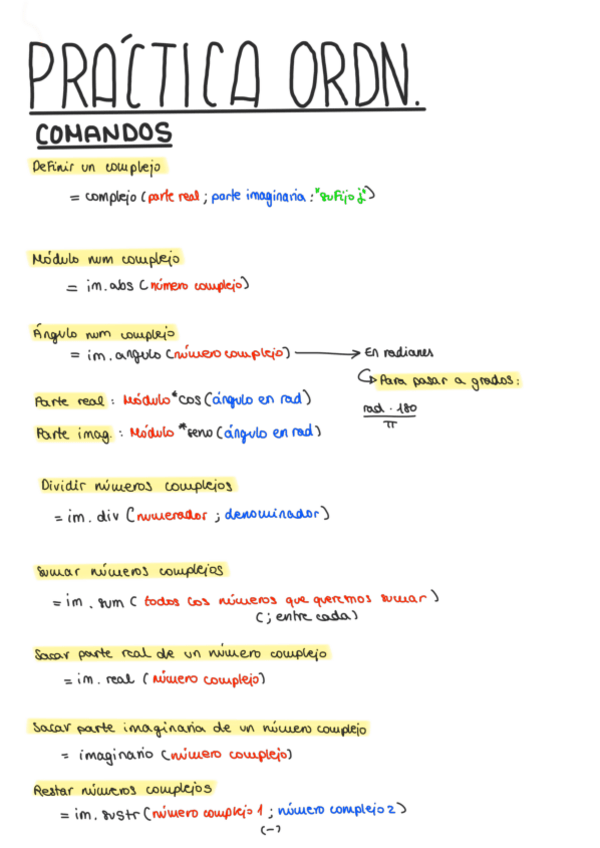 PRÁCTICA ORDN.
COMANDOS
Definir un complejo
= complejo (parte real ; parte imaginaria ; "sufijo j")
Módulo num complejo
= im.abs (número complejo)
Ángulo num complejo
= im.angulo (número complejo) → En radianes
↳ Para pasar a grados:
Parte real : Módulo * cos (ángulo en rad)
rad · 180
π
Parte imag. : Módulo * seno (ángulo en rad)
Dividir números complejos
= im. div (numerador ; denominador)
Sumar números complejos
= im. sum ( todos los números que queremos sumar )
( ; entre cada)
Sacar parte real de un número complejo
= im. real ( número complejo)
Sacar parte imaginaria de un número complejo
= imaginario (número complejo)
Restar números complejos
= im. sustr (número complejo 1 ; número complejo 2)
(-)